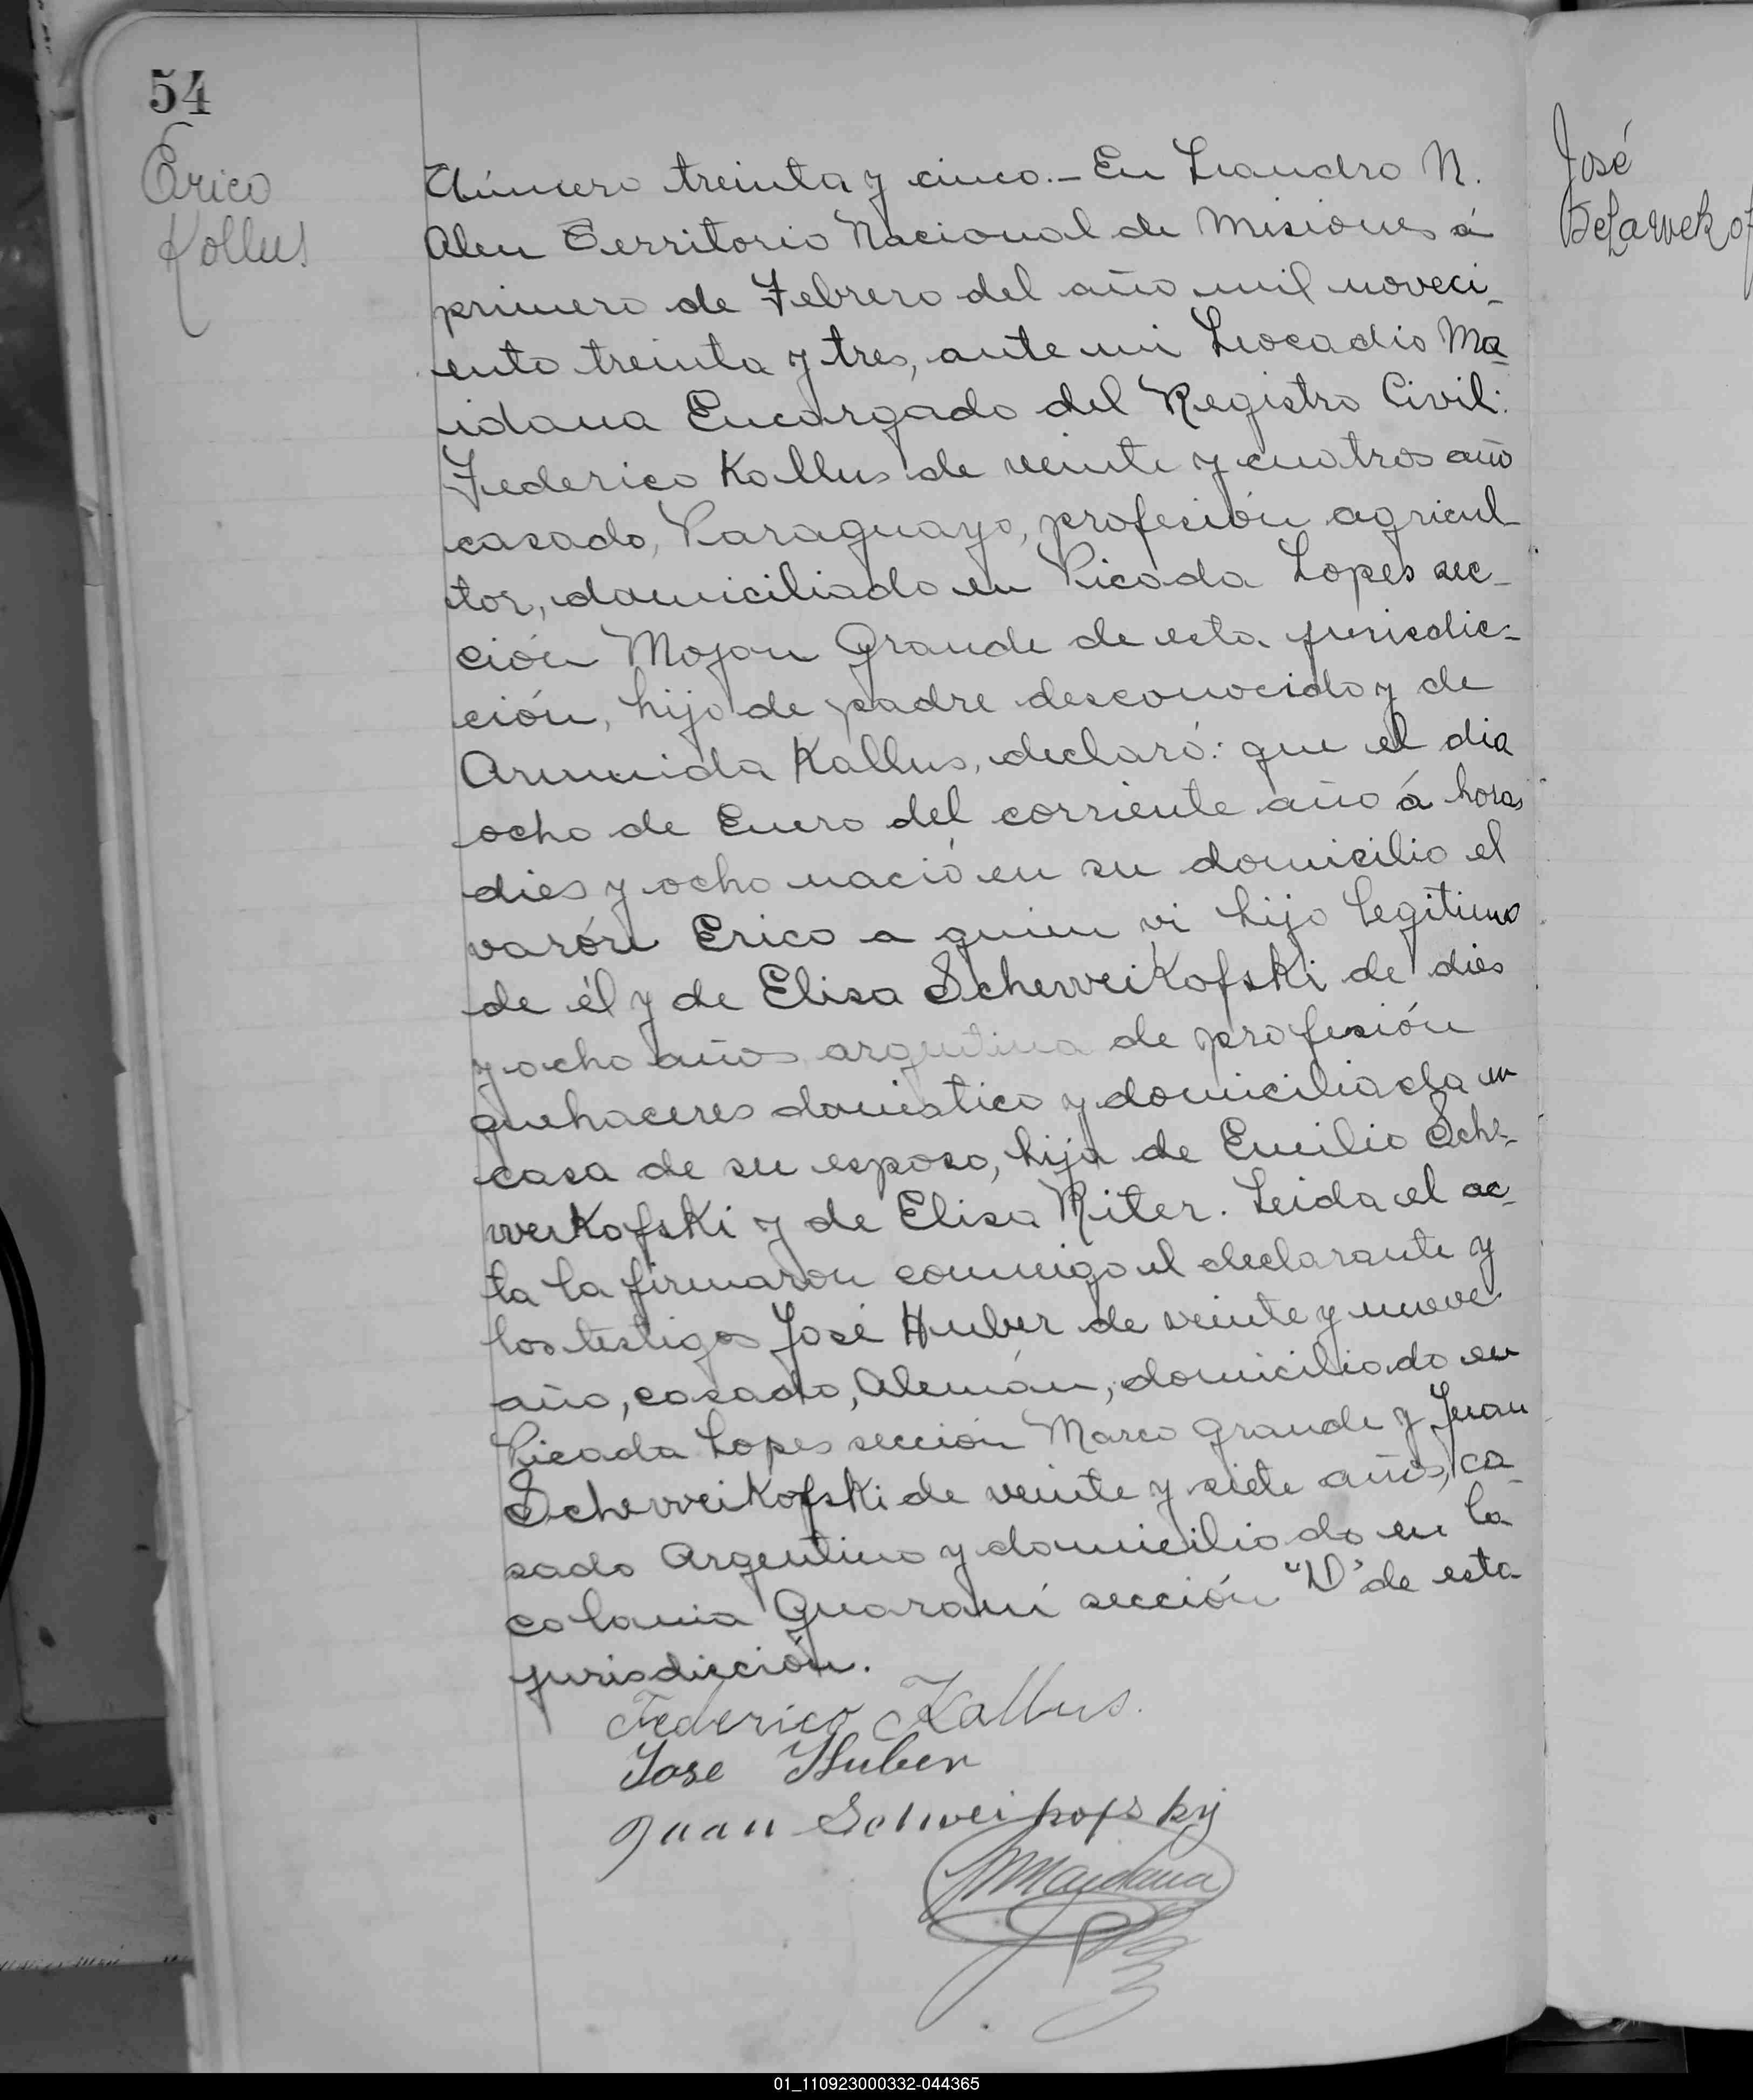 54
Erico
Kollus
Número treinta y cinco.- En Leandro N.
Alen Territorio Nacional de Misiones á
primero de Febrero del año mil noveci-
ento treinta y tres, ante mi Leocadio Ma-
idana Encargado del Registro Civil:
Federico Kallus de veinte y cuatros año
casado, Paraguayo, profesión agricul-
tor, domiciliado en Picada Lopes sec-
ción Mojon Grande de esta jurisdic-
ción, hijo de padre desconocido y de
Armida Kallus, declaró: que el dia
ocho de Enero del corriente año á horas
dies y ocho nació en su domicilio el
varón Erico a quien vi hijo legitimo
de él y de Elisa Scherveikofski de dies
y ocho años argentina de profesión
quehaceres domistico y domiciliada en
casa de su esposo, hija de Emilio Sche-
rveikofski y de Elisa Riter. Leida el ac-
ta la firmaron conmigo el declarante y
los testigos José Huber de veinte y nueve
año, casado, Alemán, domiciliado en
Picada Lopes sección Marco Grande y Juan
Scherveikofski de veinte y siete años, ca-
sado Argentino y domiciliado en la
colonia Guaraní sección "D" de esta
jurisdicción.
Federico Kallus.
Jose Huber
Juan Schweikofskij
Maidana
José
01_110923000332-044365